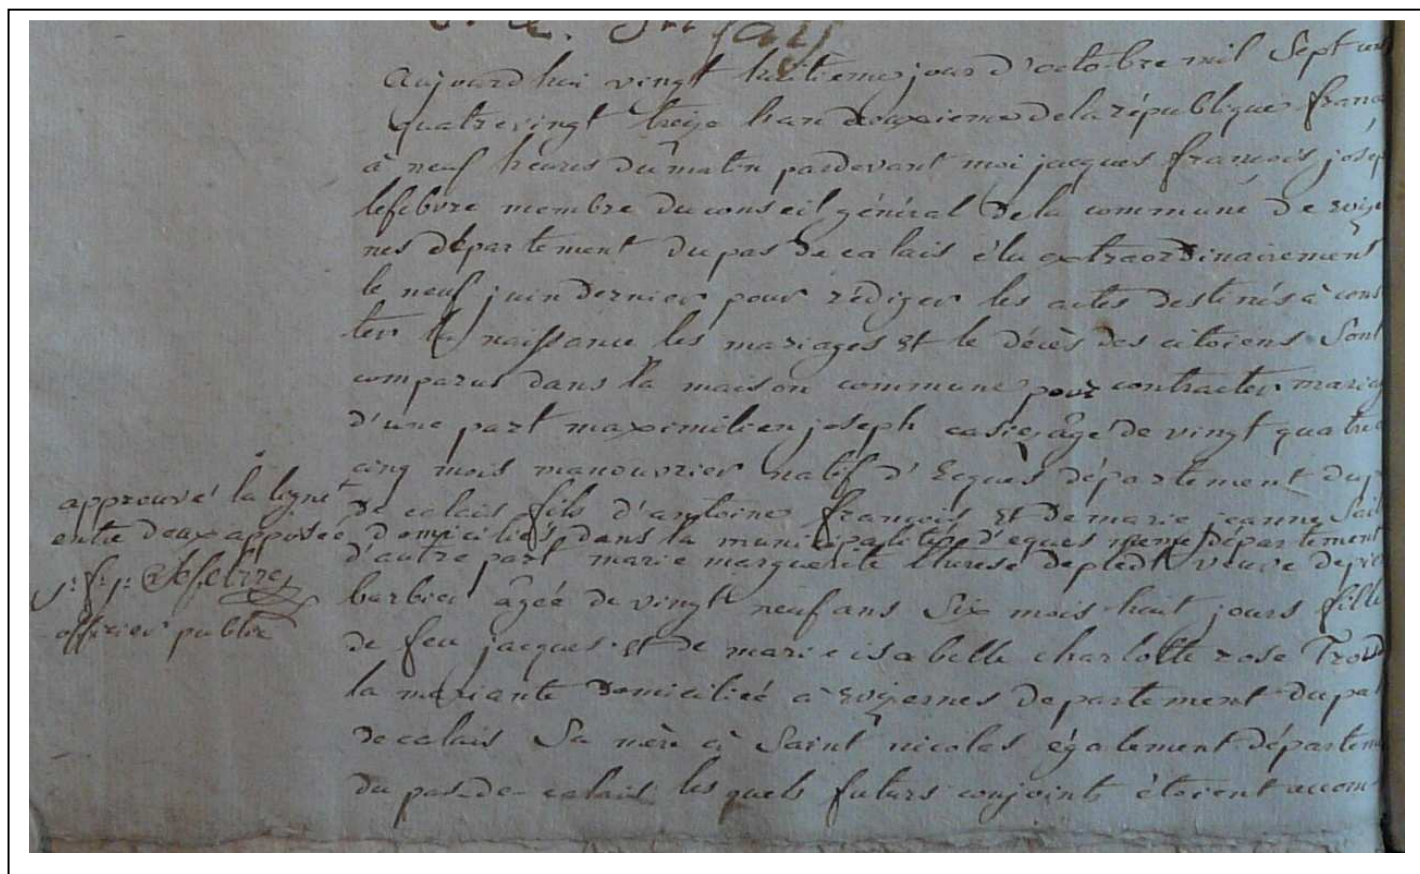 aujourd'hui vingt huitieme jour d'octobre mil Sept cent
quatrevingt treize l'an deuxieme de la république franc
à neuf heures du matin pardevant moi jacques françois josep
lefebvre membre du conseil général de la commune de
nes département du pas de calais élu extraordinairement
le neuf juin dernier pour rédiger les actes destinés à cons
ter la naissance les mariages et le décès des citoiens Sont
comparus dans la maison commune pour contracter mariag
d'une part maximilien joseph age de vingt quatre
cinq mois manouvrier natif d'Ecques département du p
de calais fils d'antoine françois et de marie jeanne
domiciliés dans la municipalité d'eques meme département
d'autre part marie marguerite therese veuve de
barbier âgée de vingt neuf ans Six mois huit jours fille
de feu jacques et de marie isabelle charlotte rose
la mariante domiciliée à departement du pas
de calais Sa mère à Saint nicolas également départem
du pas-de-calais lesquels futurs conjoints étoient accom-
approuvé la ligne
entre deux apposée
j. f. j. Lefebvre
officier public